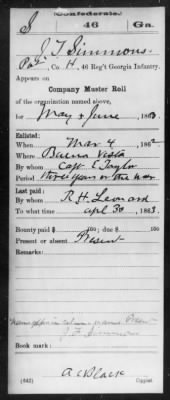 (Confederate.)
S 46 Ga.
J. T. Simmons
Pvt., Co. H, 46 Reg't Georgia Infantry.
Appears on
Company Muster Roll
of the organization named above,
for May & June, 1863.
Enlisted:
When Mar 4, 1862
Where Buena Vista
By whom Capt. E. Taylor
Period three years or the war
Last paid:
By whom R. H. Leonard
To what time Apl 30, 1863.
Bounty paid $ 100; due $ 100
Present or absent Present
Remarks:
Name appears in column of names Present
J. F. Simmons
Book mark:
A C Black
(642) Copyist.